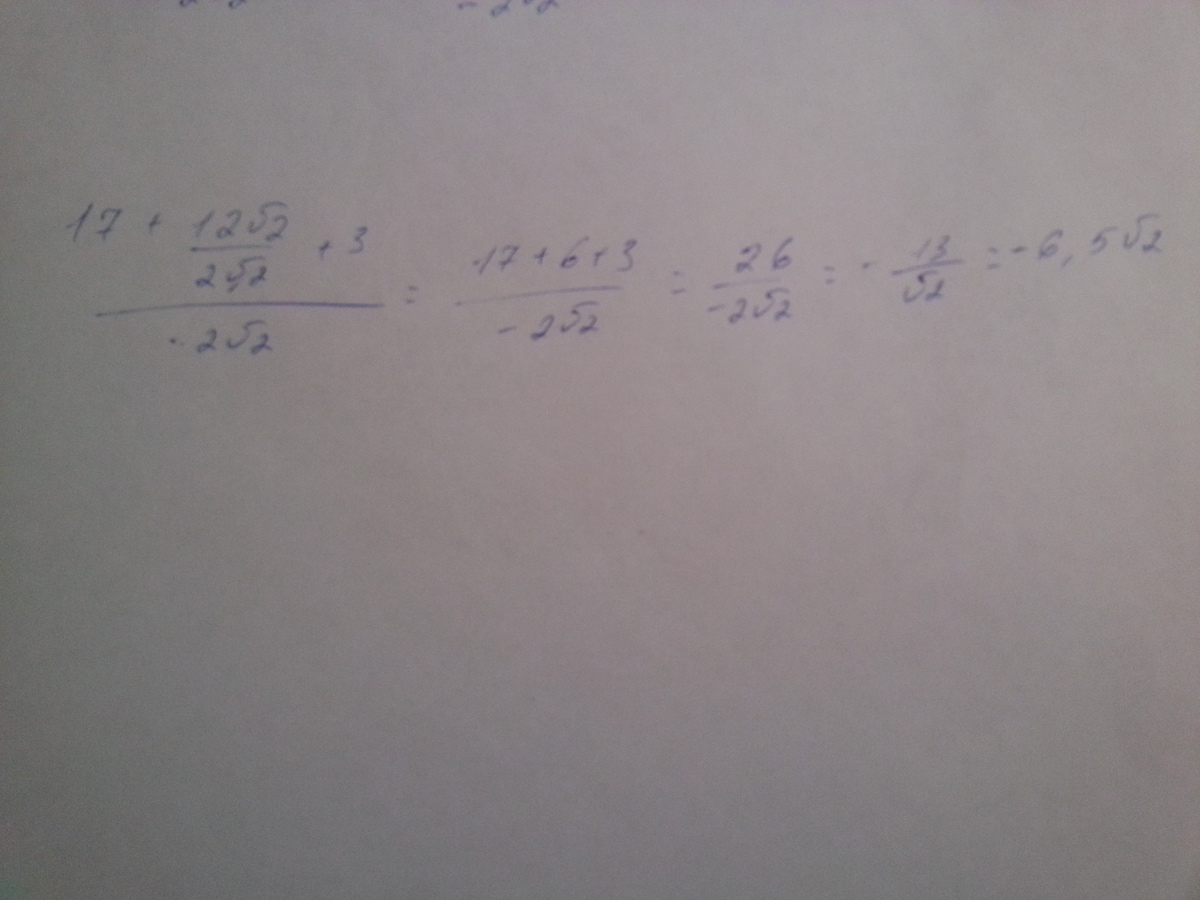 17 + 12√2/2√2 + 3 / -2√2 = 17+6+3 / -2√2 = 26 / -2√2 = - 13/√2 = -6,5√2